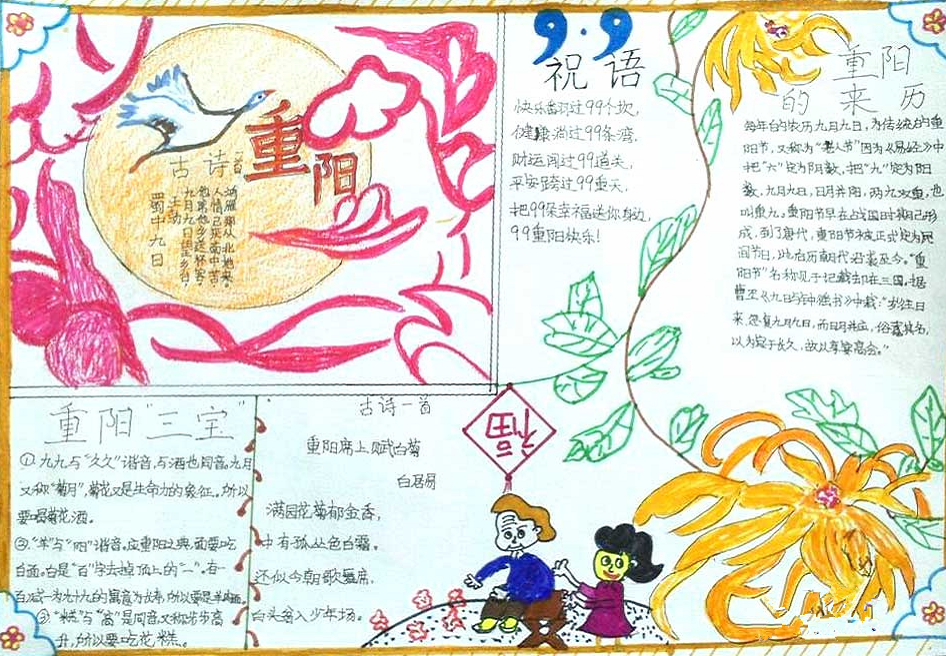 重阳
古诗一首
蜀中九日
王勃
九月九日望乡台，
他席他乡送客杯。
人情已厌南中苦，
鸿雁那从北地来。
9.9
祝语
快乐翻过99个坎，
健康淌过99条湾，
财运闯过99道关，
平安跨过99重天，
把99朵幸福送你身边，
99重阳快乐！
重阳
的来历
每年台的农历九月九日，为传统的重
阳节，又称为"老人节"因为《易经》中
把"六"定为阴数，把"九"定为阳
数，九月九日，日月并阳，两九双重，也
叫重九，重阳节早在战国时期已形
成，到了唐代，重阳节被正式定为民
间节日，此后历朝代沿袭至今。"重
阳节"名称见于记载却在三国，据
曹丕《九日与钟繇书》中载："岁往月
来，忽复九月九日，而日月并应，俗嘉其名，
以为宜于长久，故以享宴高会。"
重阳"三宝"
①，九九与"久久"谐音，与酒也同音，九月
又称"菊月"，菊花又是生命力的象征，所以
要喝菊花酒。
②，"羊"与"阳"谐音，应重阳之典，面要吃
白面，白是"百"字去掉顶上的"一"。有一
百减一为九十九的寓意为长寿，所以要吃羊肉面。
③"糕"与"高"是同音，又称步步高
升，所以要吃花糕。
古诗一首
重阳席上赋白菊
白居易
满园花菊郁金香，
中有孤丛色白霜。
还似今朝歌舞席，
白头翁入少年场。
福